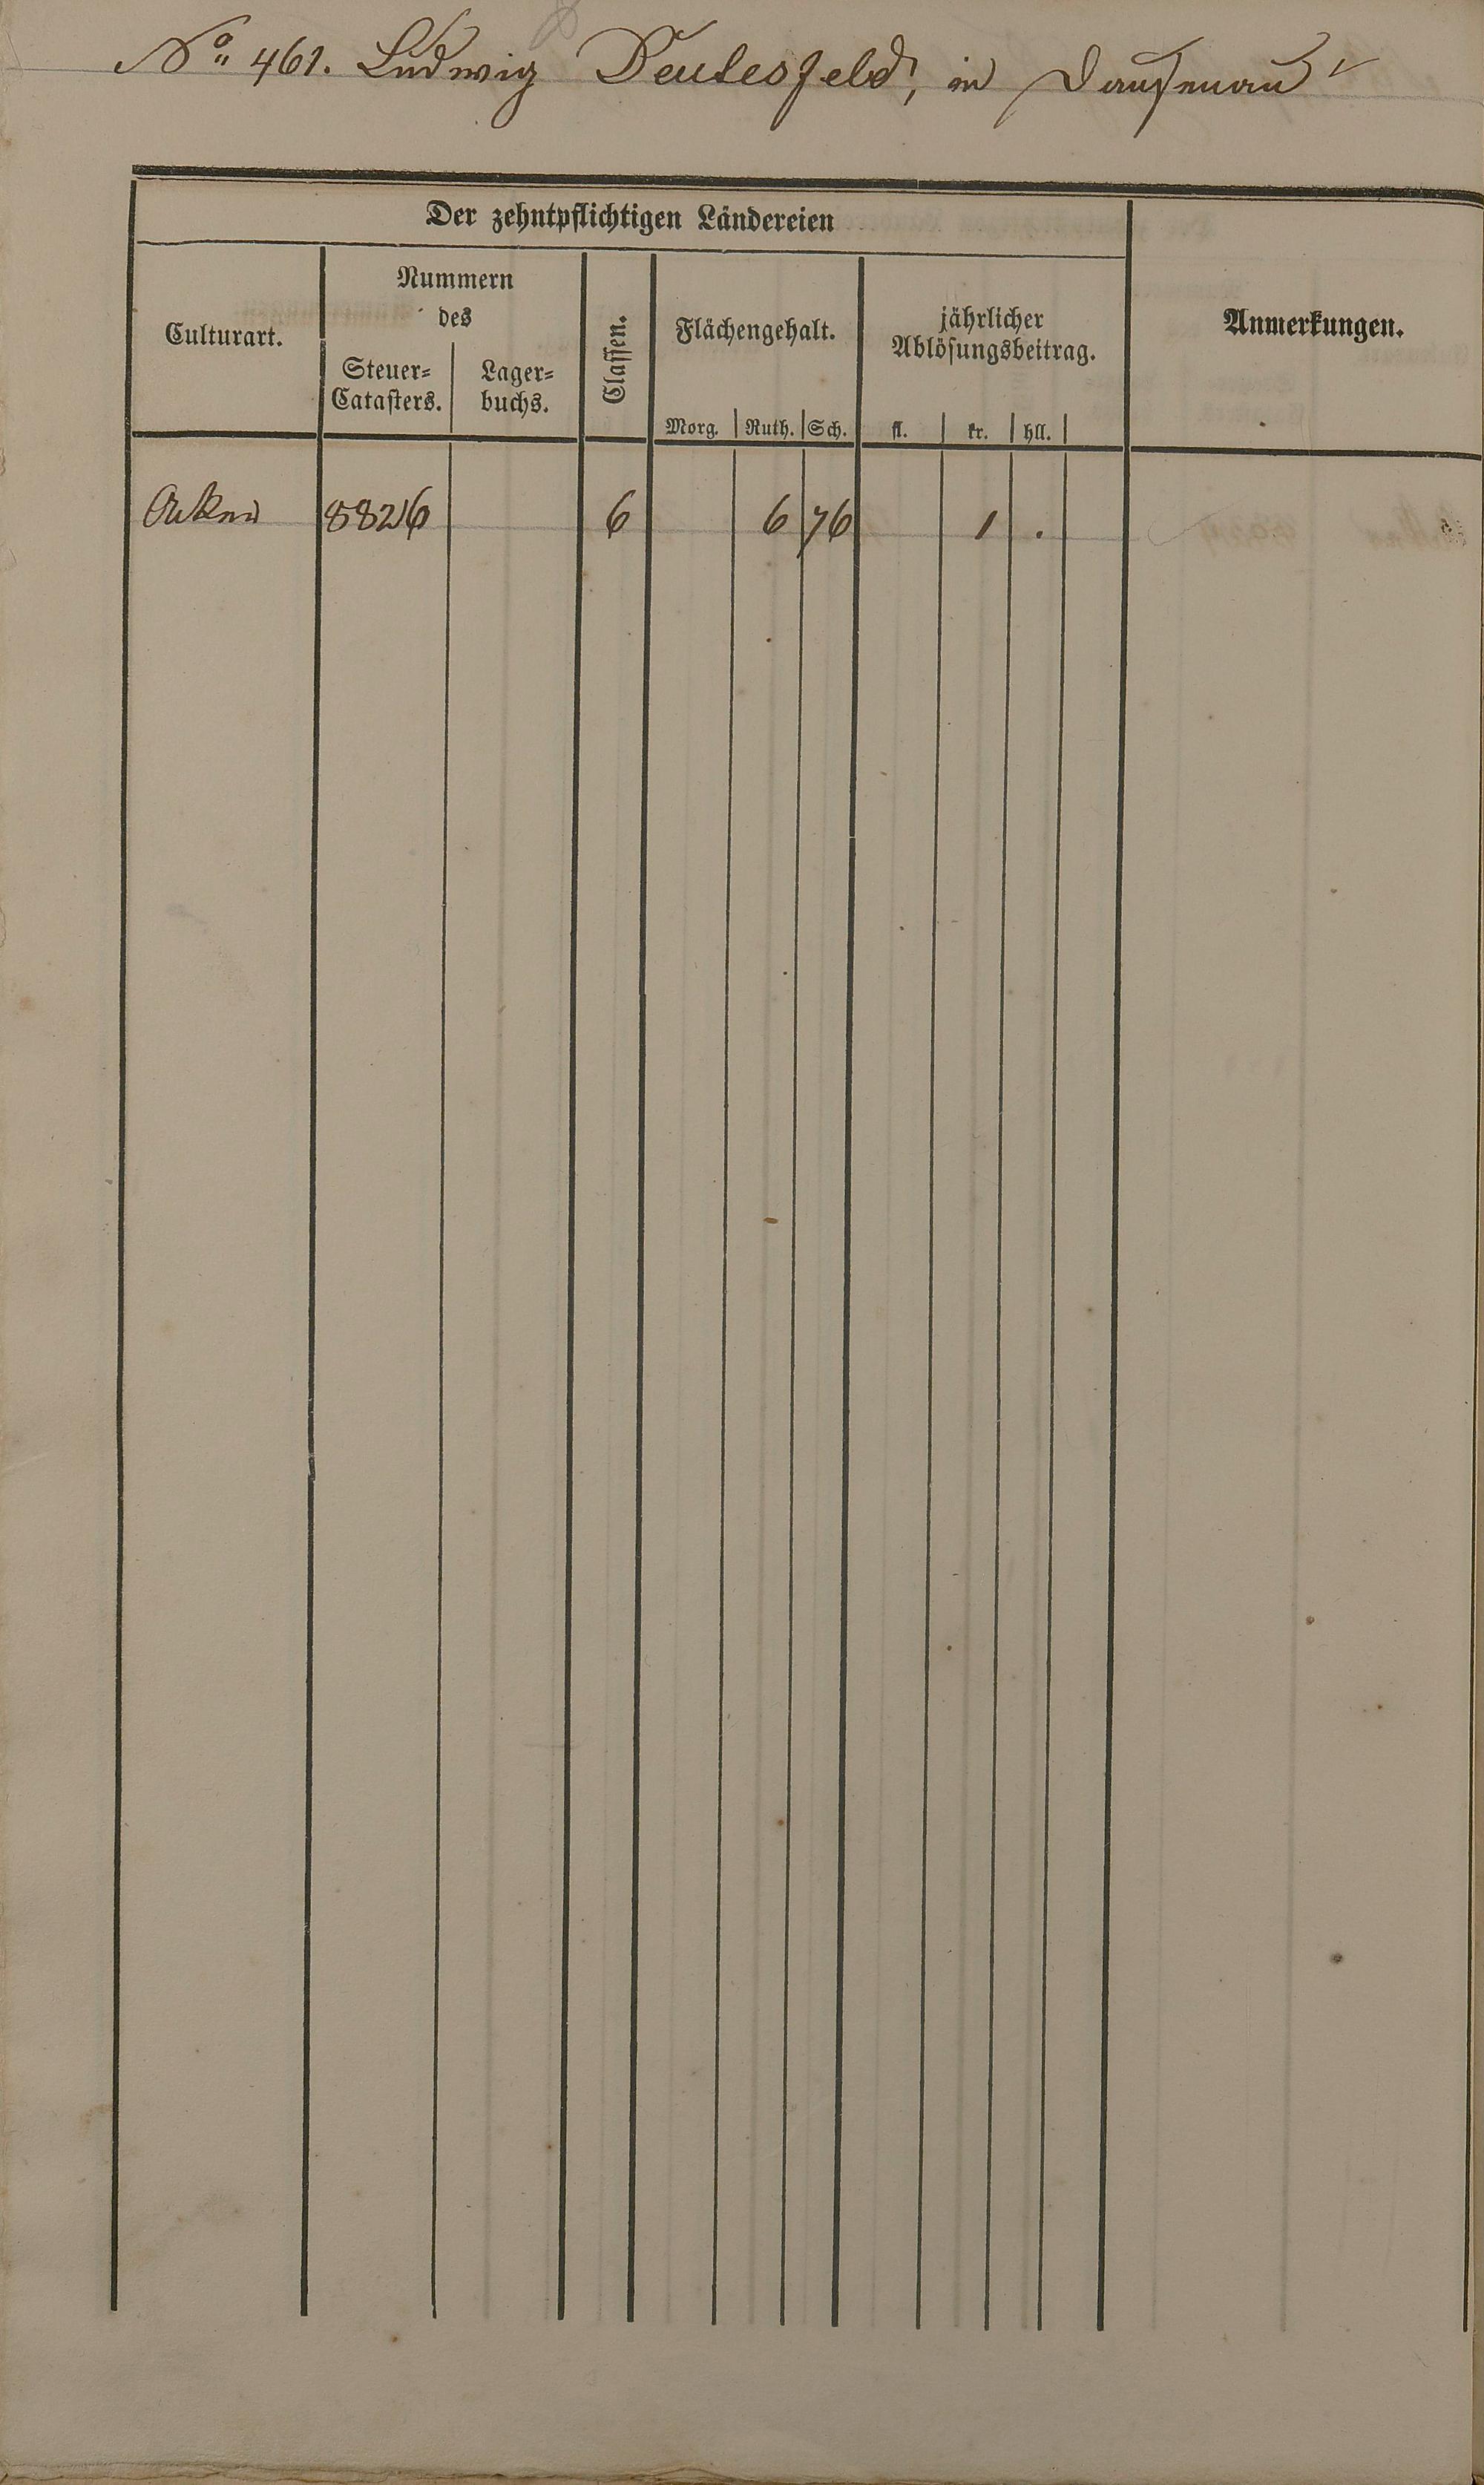 No. 461. Ludwig Deulesfeld, in Dausenau
Der zehntpflichtigen Ländereien
Culturart.
Nummern
des
Steuer=
Catasters.
Lager=
buchs.
Classen.
Flächengehalt.
Morg. Ruth. Sch.
jährlicher
Ablösungsbeitrag.
fl. kr. hll.
Anmerkungen.
Acker 8826 6 6 76 1 .